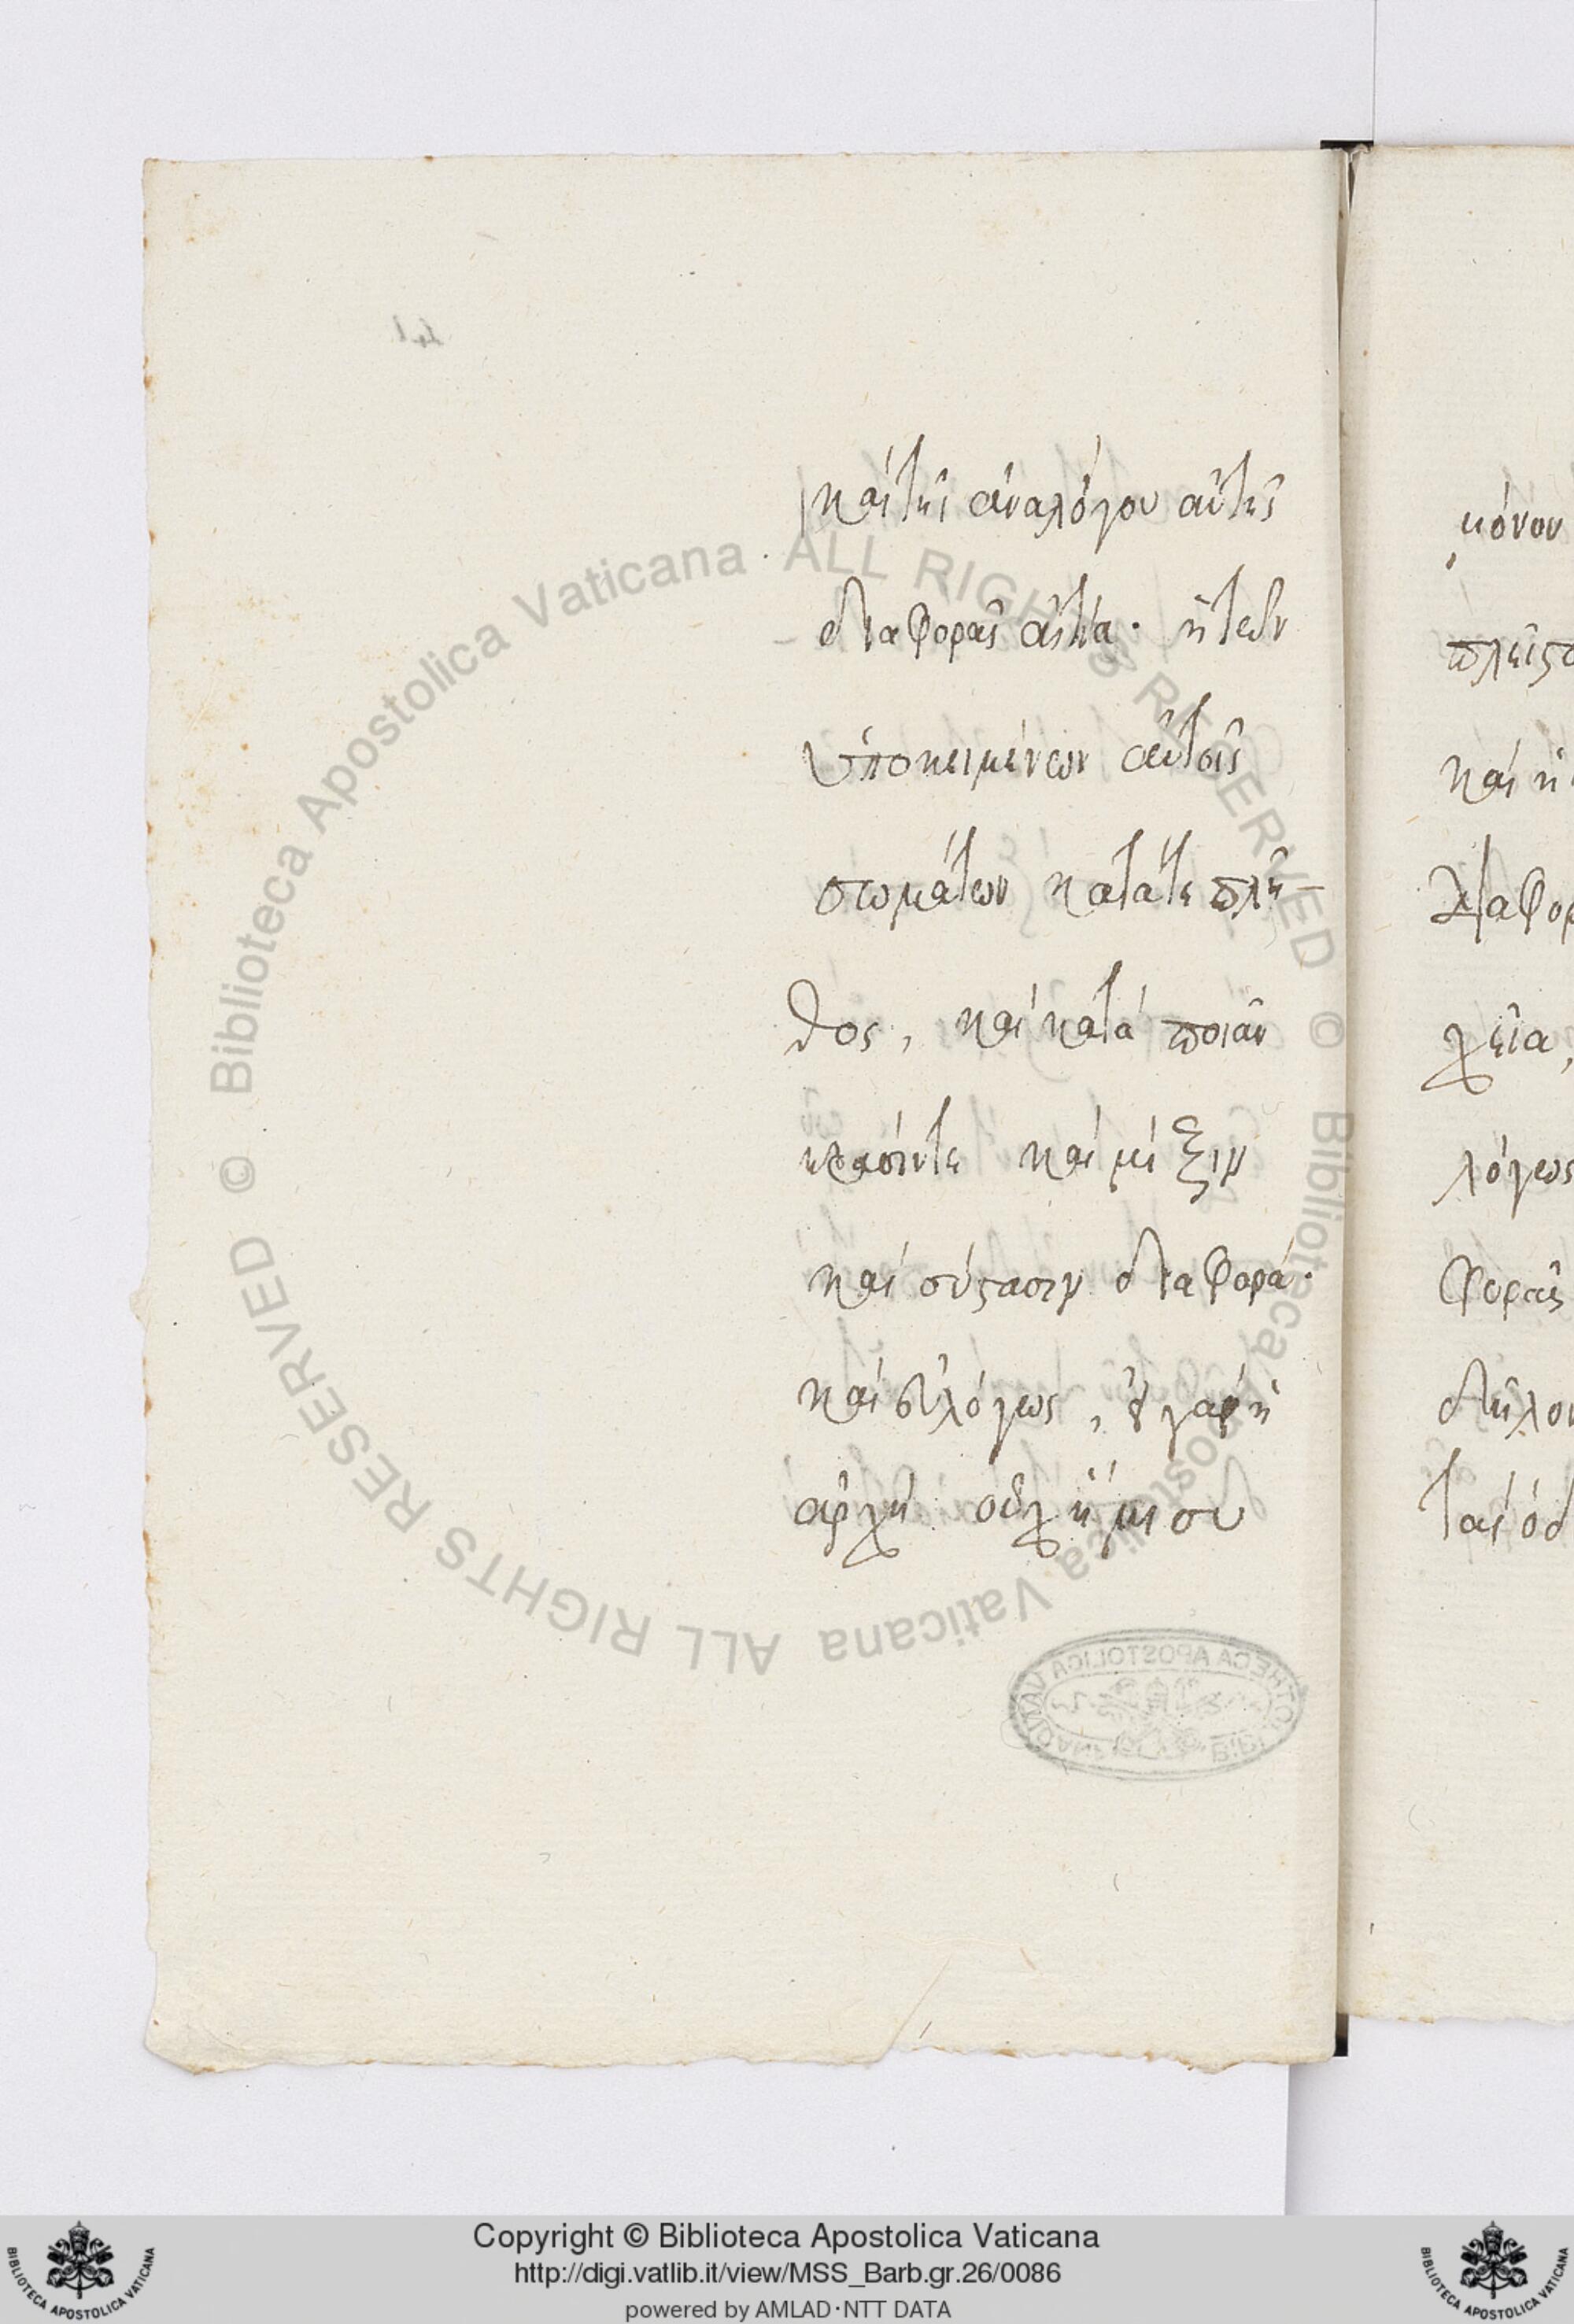 καὶ τῆς ἀναλόγου αὐτῆς
διαφορᾶς αἰτία· ἥ τε τῶν
ὑποκειμένων αὐτοῖς
σωμάτων κατά τε πλῆ-
θος, καὶ κατὰ ποιὰν
κρᾶσίν τε καὶ μίξιν
καὶ σύστασιν διαφορά·
καὶ εὐλόγως, οὐ γὰρ ἡ
ἀρχὴ οὐχ ἥμισυ
μόνον
πλεῖστο
καὶ ἡ
διαφορ
χεῖα,
λόγως
φορᾶς
δῆλον
ται ὁδ
© Biblioteca Apostolica Vaticana ALL RIGHTS RESERVED © Biblioteca Apostolica Vaticana ALL RIGHTS RESERVED
Copyright © Biblioteca Apostolica Vaticana
http://digi.vatlib.it/view/MSS_Barb.gr.26/0086
powered by AMLAD·NTT DATA
BIBLIOTECA APOSTOLICA VATICANA
BIBLIOTECA APOSTOLICA VATICANA